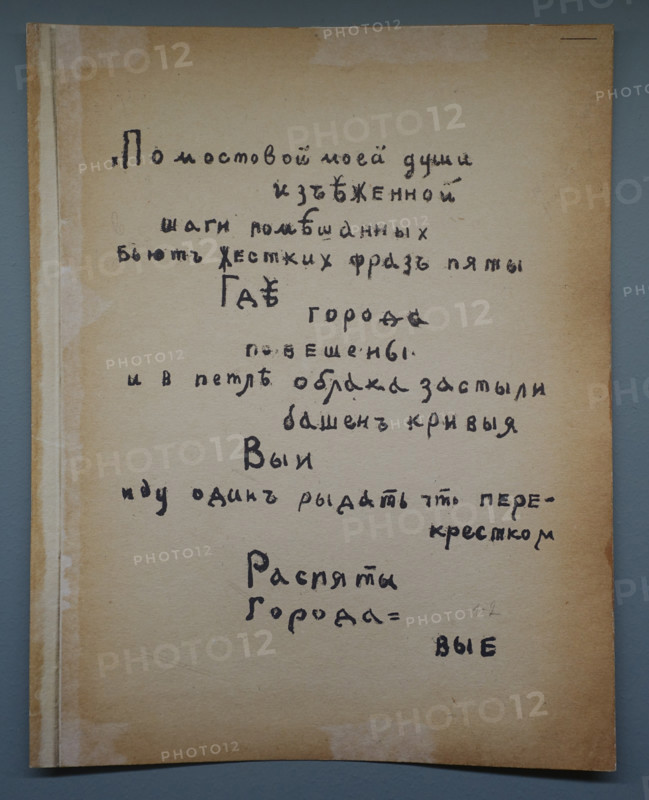 По мостовой моей души
изъѣженной
шаги помѣшанных
бьютъ жестких фразъ пяты
Гдѣ
города
повешены.
и в петлѣ облака застыли
башенъ кривыя
Выи
иду одинъ рыдать что пере-
крестком
Распяты
Города=
вые
PHOTO12